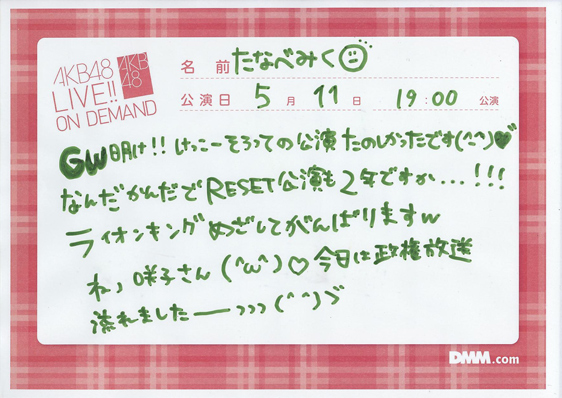 AKB48
LIVE!!
ON DEMAND
AKB
48
名 前 たなべみく
公演日 5月11日 19:00 公演
GW明け!! けっこーそろっての公演たのしかったです(^-^)♥
なんだかんだでRESET公演も2年ですか...!!!
ライオンキングめざしてがんばりますw
ね、咲子さん(^ω^)♡今日は政権放送
流れましたーっっっ(^^)ゞ
DMM.com